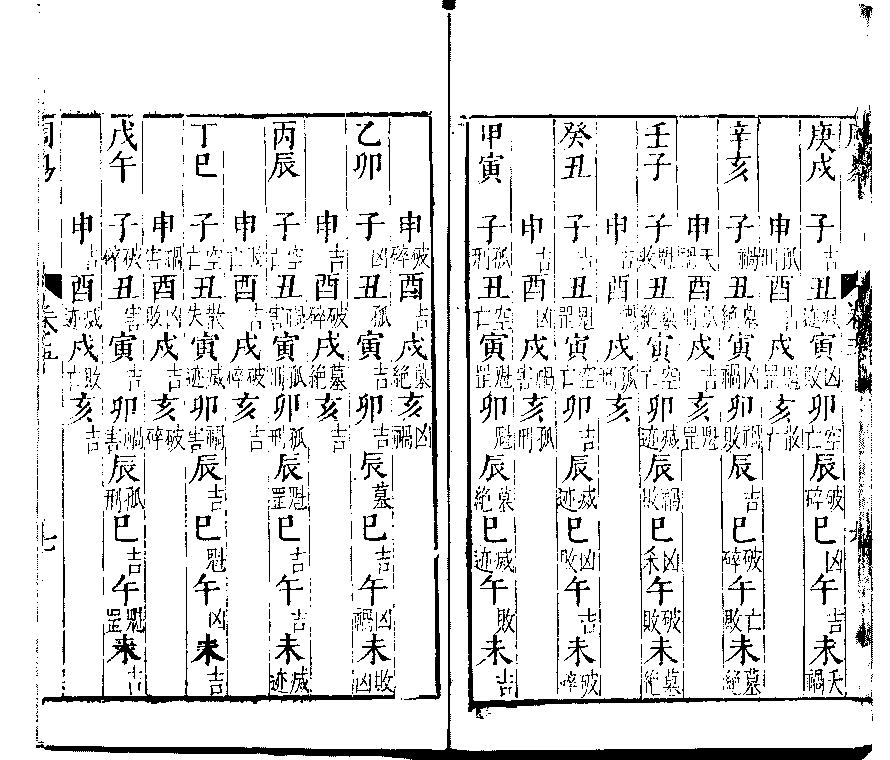 庚戌 子吉 丑滅迹 寅凶敗 卯空亡 辰破碎 巳凶 午吉 未天禍
申孤刑 酉吉 戌魁罡 亥散亡
辛亥 子禍 丑墓絶 寅凶禍 卯禍敗 辰吉 巳破碎 午亡敗 未墓絶
申天 酉 戌吉 亥魁罡
壬子 子魁敗 丑墓絶 寅空亡 卯滅迹 辰禍敗 巳凶 午破敗 未墓絶
申吉 酉 戌孤刑 亥
癸丑 子吉 丑魁罡 寅空亡 卯吉 辰滅迹 巳凶敗 午吉 未破碎
申吉 酉凶 戌禍害 亥孤刑
甲寅 子孤刑 丑空亡 寅魁罡 卯魁 辰墓絶 巳滅迹 午敗 未吉
申破碎 酉吉 戌墓絶 亥凶禍
乙卯 子凶 丑孤 寅吉 卯吉 辰墓 巳吉 午凶禍 未敗凶
申吉 酉破碎 戌墓絶 亥吉
丙辰 子空亡 丑禍害 寅孤刑 卯孤刑 辰魁罡 巳吉 午吉 未滅迹
申亡 酉吉 戌破碎 亥吉
丁巳 子空亡 丑散失 寅滅迹 卯禍害 辰吉 巳魁 午凶 未吉
申禍害 酉凶敗 戌吉 亥破碎
戊午 子破碎 丑害 寅吉 卯禍害 辰孤刑 巳吉 午魁罡 未吉
申吉 酉滅迹 戌敗亡 亥吉
七